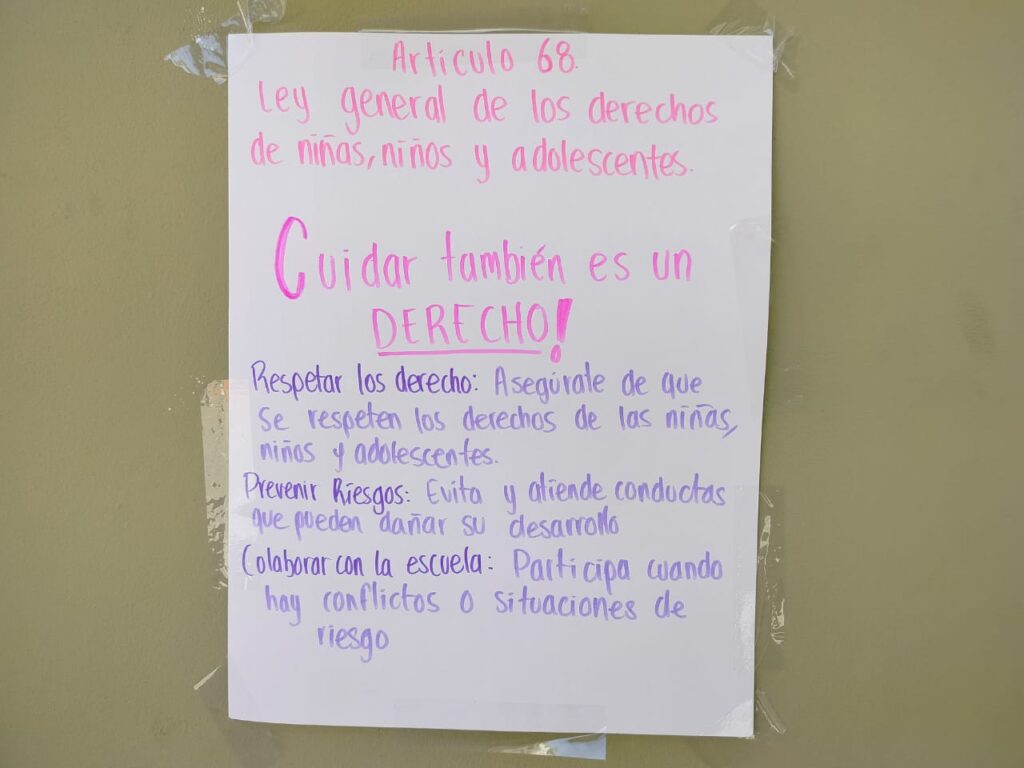 Articulo 68.
Ley general de los derechos
de niñas, niños y adolescentes.
Cuidar también es un
DERECHO!
Respetar los derecho: Asegúrale de que
se respeten los derechos de las niñas,
niños y adolescentes.
Prevenir Riesgos: Evita y atiende conductas
que pueden dañar su desarrollo
Colaborar con la escuela: Participa cuando
hay conflictos o situaciones de
riesgo